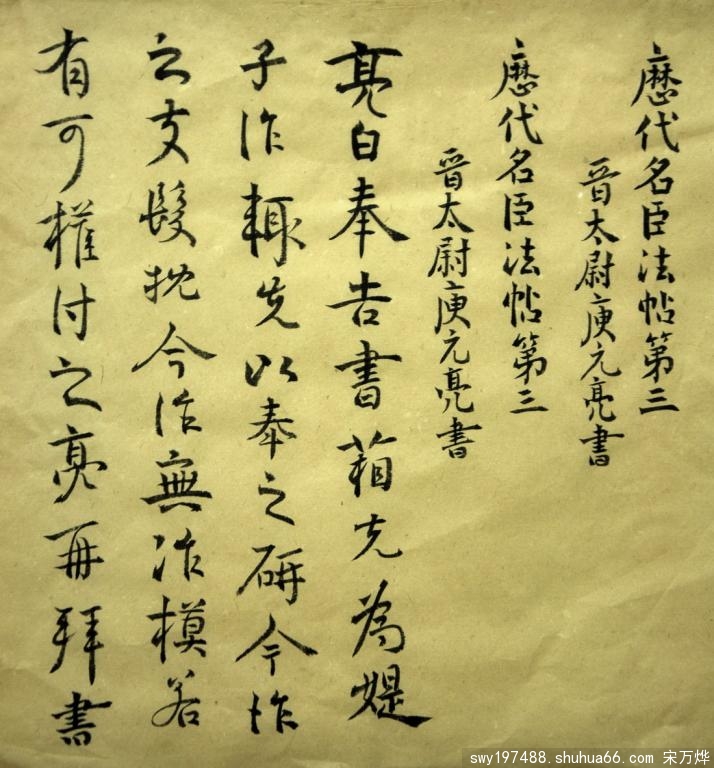 歷代名臣法帖第三
晉太尉庾元亮書
歷代名臣法帖第三
晉太尉庾元亮書
亮白奉告書箱先為媞
子作輙先以奉之研今作
之支髮抌今作無作模若
有可權付之亮再拜書
swy197488.shuhua66.com 宋万烨